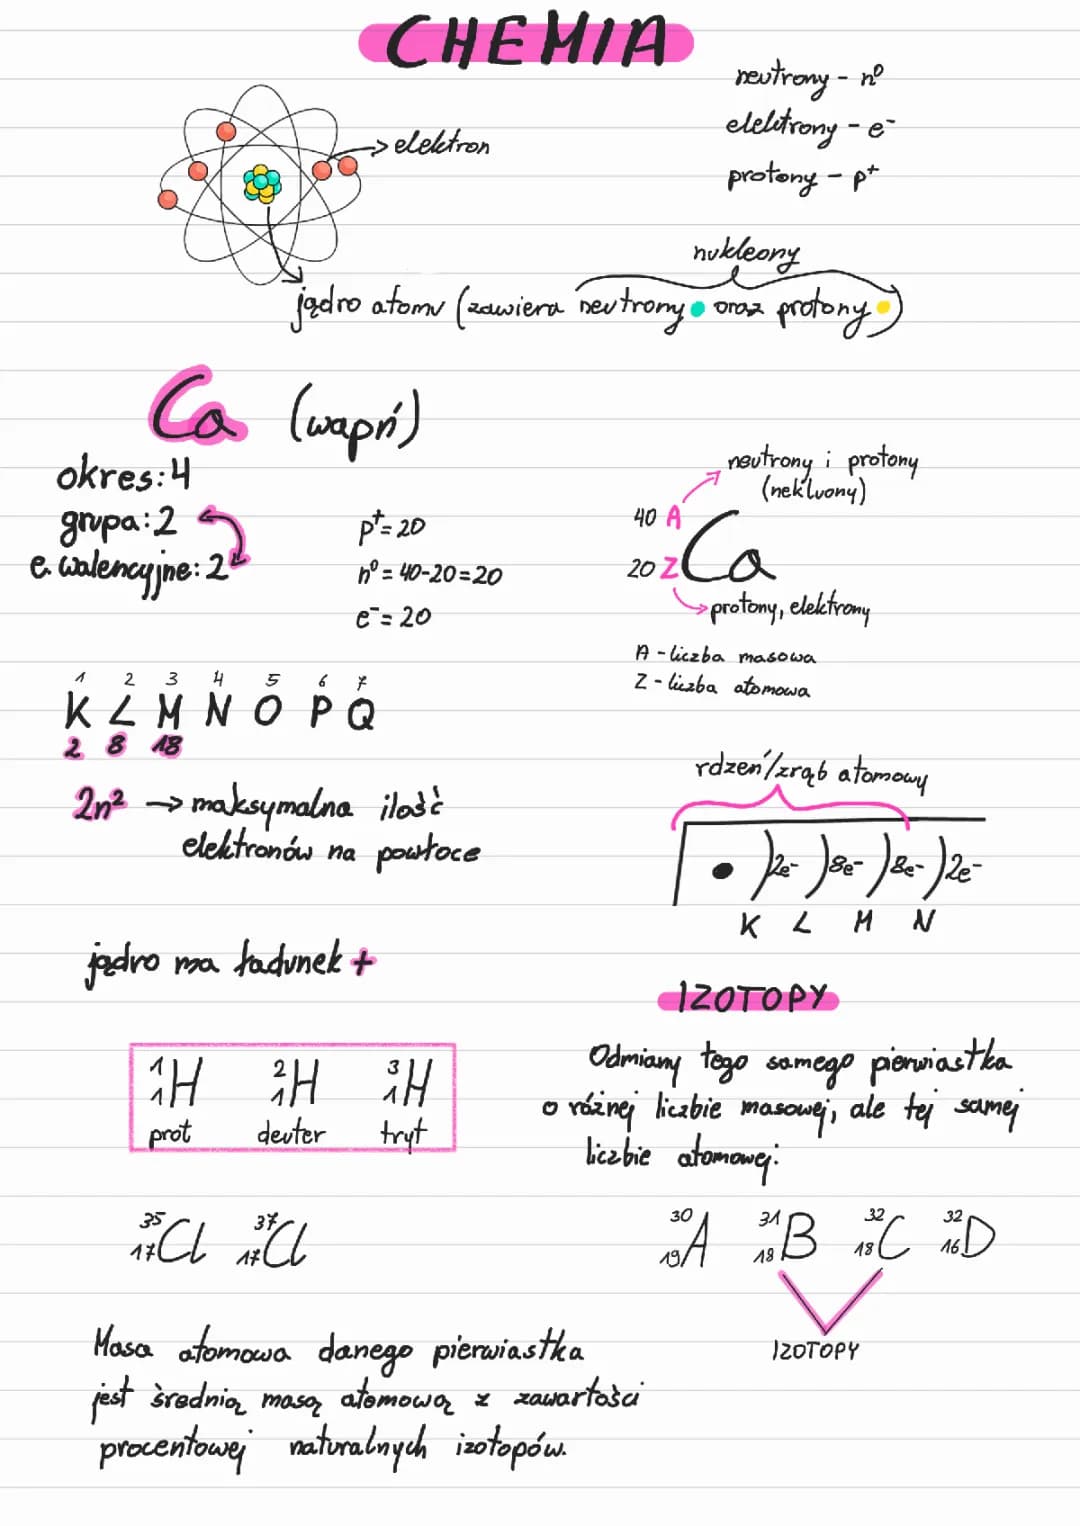 CHEMIA
neutrony - n⁰
elektrony - e⁻
protony - p⁺
elektron
nukleony
jądro atomu (zawiera neutrony oraz protony)
Ca (wapń)
okres: 4
grupa: 2
e. walencyjne: 2
p⁺= 20
n⁰ = 40-20=20
e⁻= 20
neutrony i protony
(nekluony)
40 A
Ca
20 Z
protony, elektrony
A - liczba masowa
Z - liczba atomowa
1 2 3 4 5 6 7
K L M N O P Q
2 8 18
2n² → maksymalna ilość
elektronów na powłoce
rdzeń/zrąb atomowy
)2e⁻ )8e⁻ )8e⁻ )2e⁻
K L M N
jądro ma ładunek +
IZOTOPY
Odmiany tego samego pierwiastka
o różnej liczbie masowej, ale tej samej
liczbie atomowej:
¹₁H ²₁H ³₁H
prot deuter tryt
³⁵₁₇Cl ³⁷₁₇Cl
³⁰₁₉A ³¹₁₈B ³²₁₈C ³²₁₆D
IZOTOPY
Masa atomowa danego pierwiastka
jest średnią masą atomową z zawartości
procentowej naturalnych izotopów.